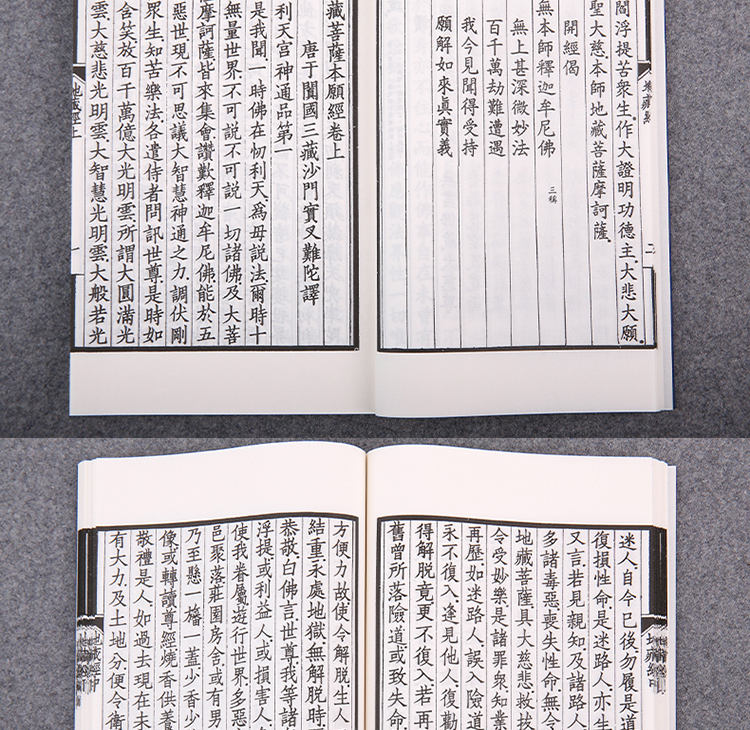 閻浮提苦衆生。作大證明功德主。大悲大願。
聖大慈。本師地藏菩薩摩訶薩。
開經偈
無本師釋迦牟尼佛 三稱
無上甚深微妙法
百千萬劫難遭遇
我今見聞得受持
願解如來眞實義
地藏經
二
藏菩薩本願經卷上
唐于闐國三藏沙門實叉難陀譯
利天宮神通品第一
是我聞。一時佛在忉利天。爲母説法。爾時十
無量世界。不可説不可説一切諸佛。及大菩
摩訶薩。皆來集會。讚歎釋迦牟尼佛。能於五
惡世。現不可思議大智慧神通之力。調伏剛
衆生。知苦樂法。各遣侍者。問訊世尊。是時如
含笑。放百千萬億大光明雲。所謂大圓滿光
雲。大慈悲光明雲。大智慧光明雲。大般若光
地藏經上
一
迷人。自今已後。勿履是道
復損性命。是迷路人。亦生
又言。若見親知。及諸路人
多諸毒惡。喪失性命。無令
地藏菩薩。具大慈悲。救拔
令受妙樂。是諸罪衆。知業
再歷。如迷路人。誤入險道
永不復入。逢見他人。復勸
得解脱竟。更不復入。若再
舊曾所落險道。或致失命
地藏經中
方便力故。使令解脱。生人
結重。永處地獄。無解脱時
恭敬。白佛言。世尊。我等諸
浮提。或利益人。或損害人
使我眷屬遊行世界。多惡
邑聚落。莊園房舍。或有男
乃至懸一旛一蓋。少香少
像。或轉讀尊經。燒香供養
敬禮是人。如過去現在未
有大力。及土地分。便令衛
地藏經中